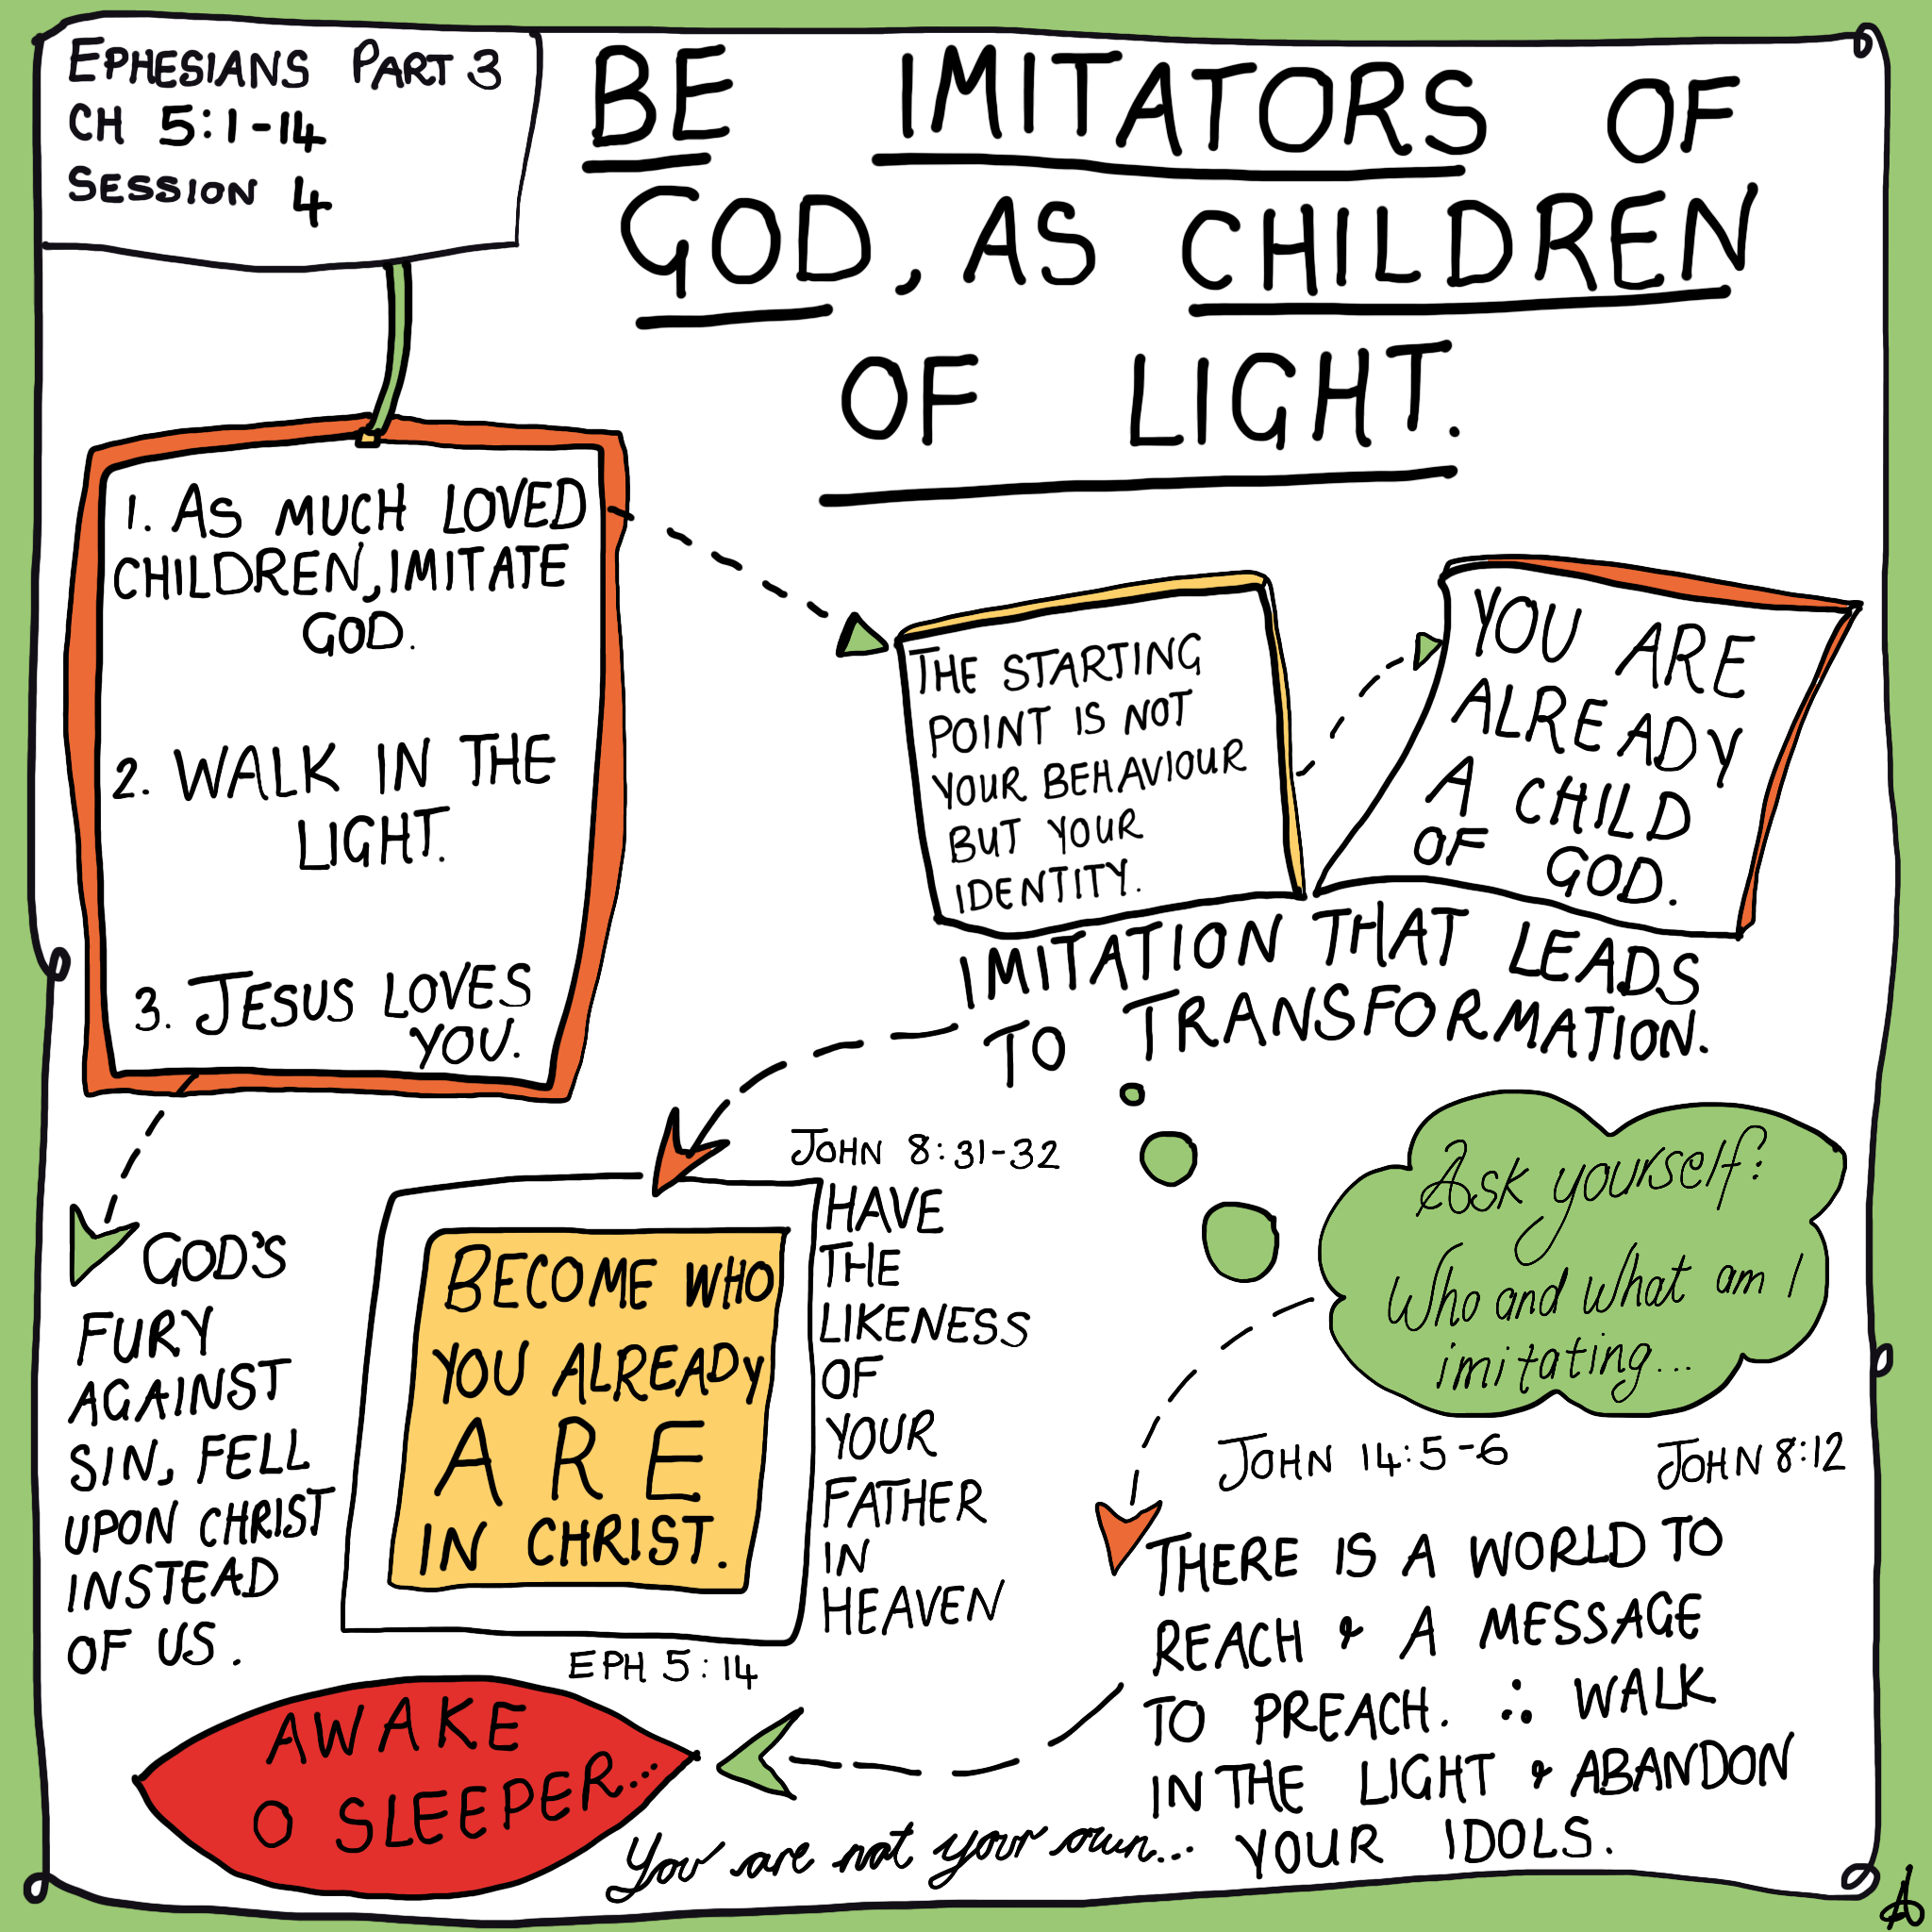 EPHESIANS PART 3
CH 5:1-14
SESSION 4
BE IMITATORS OF
GOD, AS CHILDREN
OF LIGHT.
1. AS MUCH LOVED
CHILDREN, IMITATE
GOD.
2. WALK IN THE
LIGHT.
3. JESUS LOVES
YOU.
THE STARTING
POINT IS NOT
YOUR BEHAVIOUR
BUT YOUR
IDENTITY.
YOU ARE
ALREADY
A CHILD
OF GOD.
IMITATION THAT LEADS
TO TRANSFORMATION.
GOD'S
FURY
AGAINST
SIN, FELL
UPON CHRIST
INSTEAD
OF US.
BECOME WHO
YOU ALREADY
ARE
IN CHRIST.
JOHN 8:31-32
HAVE
THE
LIKENESS
OF
YOUR
FATHER
IN
HEAVEN
Ask yourself:
Who and what am I
imitating...
JOHN 14:5-6
JOHN 8:12
THERE IS A WORLD TO
REACH & A MESSAGE
TO PREACH. ∴ WALK
IN THE LIGHT & ABANDON
YOUR IDOLS.
EPH 5:14
AWAKE
O SLEEPER...
You are not your own...